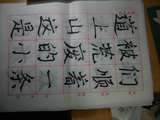 们顺着一条
被荒废的小
道上山这是